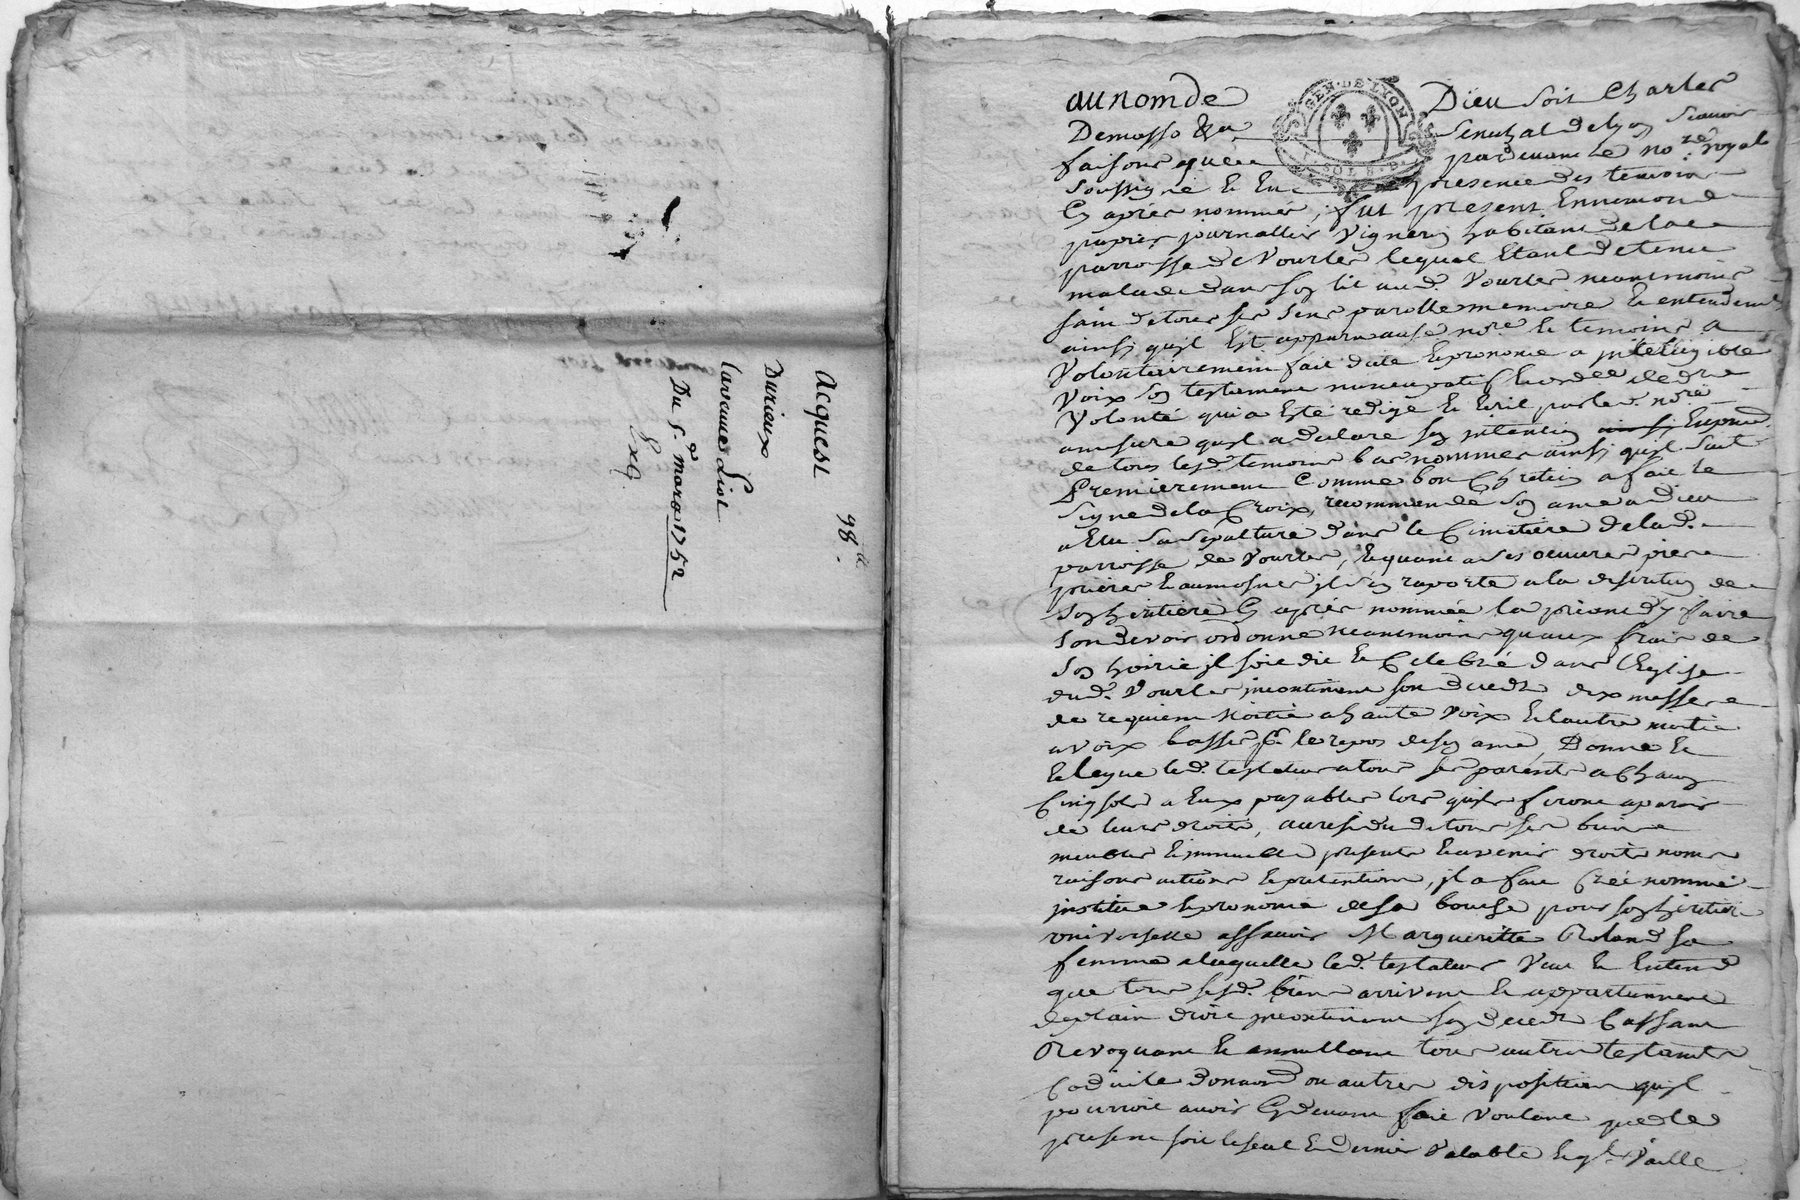 Acquest
98.le
Durieux
Lavaure Liot
Du 5.e mars 1752
Exq
au nom de Dieu soit Charles
GEN. DE LYON
SOLS
Demasso &a Senechal de Lyon Scavoir
faisons que pardevant le no.re royal
soussigné & En presence des temoins
Cy après nommés, fut present Ennemond
papier journallier Vigneron habitant de la
parroisse de Vourles lequel Etant detenu
malade dans son lit aud. Vourles neantmoins
sain de tous ses sens parolle memoire & entendement
ainsi qu'jl Est apparu aud. no.re & temoins a
Volontairement fait dicté & prononcé a jntelligible
Voix son testament nuncupatif & ordce de dre
Volonté qui a Esté redigé & Ecrit par led. no.re
amesure qu'jl a declare son jntention En pnce
de tous lesd. temoins bas nommés ainsi qu'jl suit
Premierement Comme bon Chretien a fait le
Signe de la Croix, recommandé son ame a dieu
a Elu sa sepulture dans le Cimetière de lad.
parroisse de Vourles, & quant a ses oeuvres pies
prières & aumosnes jl s'en raporte a la discretion de
son heritiere Cy après nommée la priant d'y faire
son devoir ordonne neantmoins qu'aux frais de
son hoirie jl soit dit & Celebré dans l'Eglise
dud. Vourles jncontinent son decedz dix messes
de requiem Moitié a haute Voix & l'autre moitié
a voix basse pr le repos de son ame, Donne &
& legue led. testateur a tous ses parents a Chacun
Cinq sols a Eux payables lors qu'jls feront aparoir
de leurs droits, au residu de tous ses biens
meubles & jmmeubles presents & avenir droits noms
raisons actions & pretentions, jl a fait Créé nommé
jnstitue & prononcé de sa bouche pour son heritiere
universelle assavoir Margueritte Roland sa
femme a laquelle led. testateur Veut & Entend
que tous sesd. biens arrivent & appartiennent
de plain droit jncontinent son decedz Cassant
Revoquant & annullant tous autres testaments
Codicile donnaon ou autres dispositions qu'jl
pourroit avoir Cy devant fait Voulant que le
present soit le seul & dernier Valable & ql Vaille